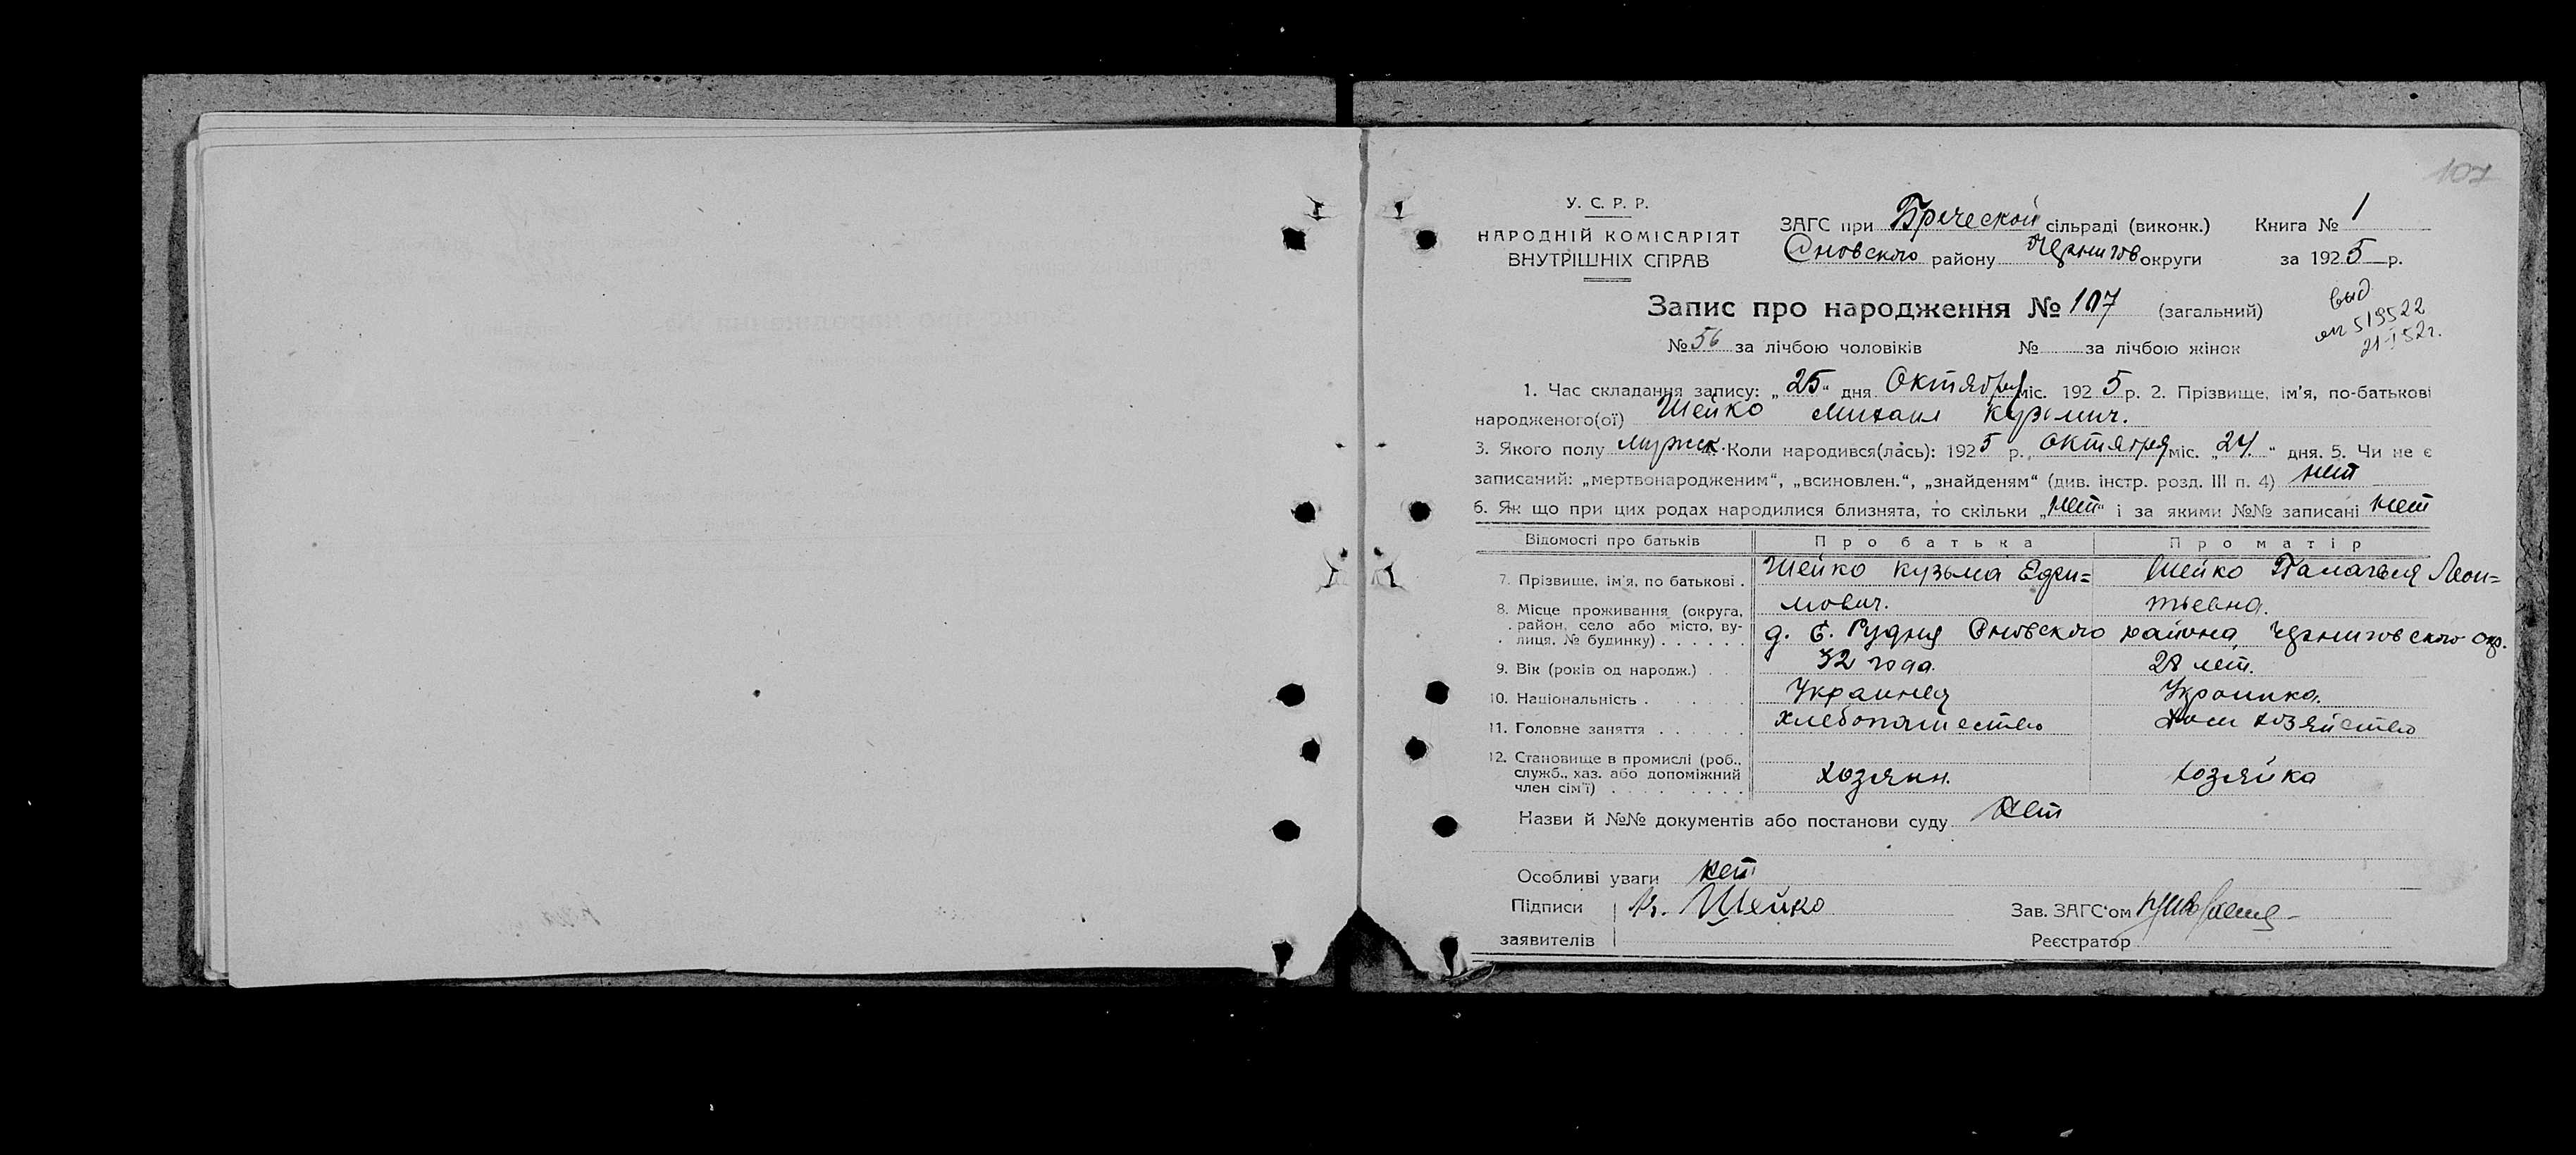 107
У. С. Р. Р.
НАРОДНІЙ КОМІСАРІЯТ
ВНУТРІШНІХ СПРАВ
ЗАГС при Бречской сільраді (виконк.) Книга № 1
Сновского району Чернигов округи за 1925 р.
Запис про народження № 107 (загальний)
№ 56 за лічбою чоловіків № за лічбою жінок
выд
519522
21-I 52г.
1. Час складання запису: „25“ дня Октября міс. 1925 р. 2. Прізвище, ім'я, по-батькові
народженого(ої) Шейко Михаил Кузьмич.
3. Якого полу мужск. 4. Коли народився(лась): 1925 р., октября міс. „24“ дня. 5. Чи не є
записаний: „мертвонародженим“, „всиновлен.“, „знайденям“ (див. інстр. розд. III п. 4) нет
6. Як що при цих родах народилися близнята, то скільки „нет“ і за якими №№ записані нет
Відомості про батьків Про батька Про матір
7. Прізвище, ім'я, по батькові . Шейко Кузьма Ефи= Шейко Палагея Леон=
мович. тьевна.
8. Місце проживання (округа, район, село або місто, вулиця, № будинку) . . . . . . д. Е. Рудня Сновского района, Черниговского окр.
9. Вік (років од народж.) . . 32 года. 28 лет.
10. Національність . . . . . Украинец Украинка.
11. Головне заняття . . . . . . хлебопашество дом хозяйство
12. Становище в промислі (роб., служб., хаз. або допоміжний член сім'ї) . . . . . . . . хозяин. хозяйка
Назви й №№ документів або постанови суду нет
Особливі уваги нет
Підписи К. Шейко Зав. ЗАГС'ом
заявителів Реєстратор